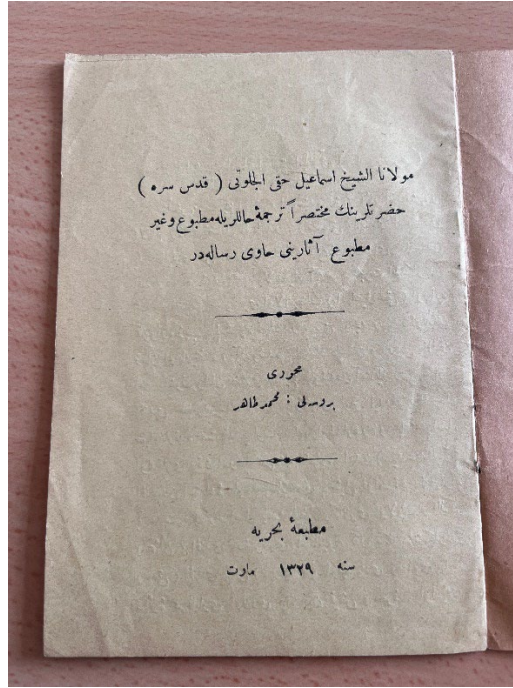 مولانا الشیخ اسماعیل حقی الجلوتی ( قدس سره )
حضرتلرینك مختصراً ترجمهٔ حاللریله مطبوع وغیر
مطبوع آثارینی حاوی رساله‌در
محرری
بروسه‌لی : محمد طاهر
مطبعهٔ بحریه
سنه ١٣٢٩ مارت